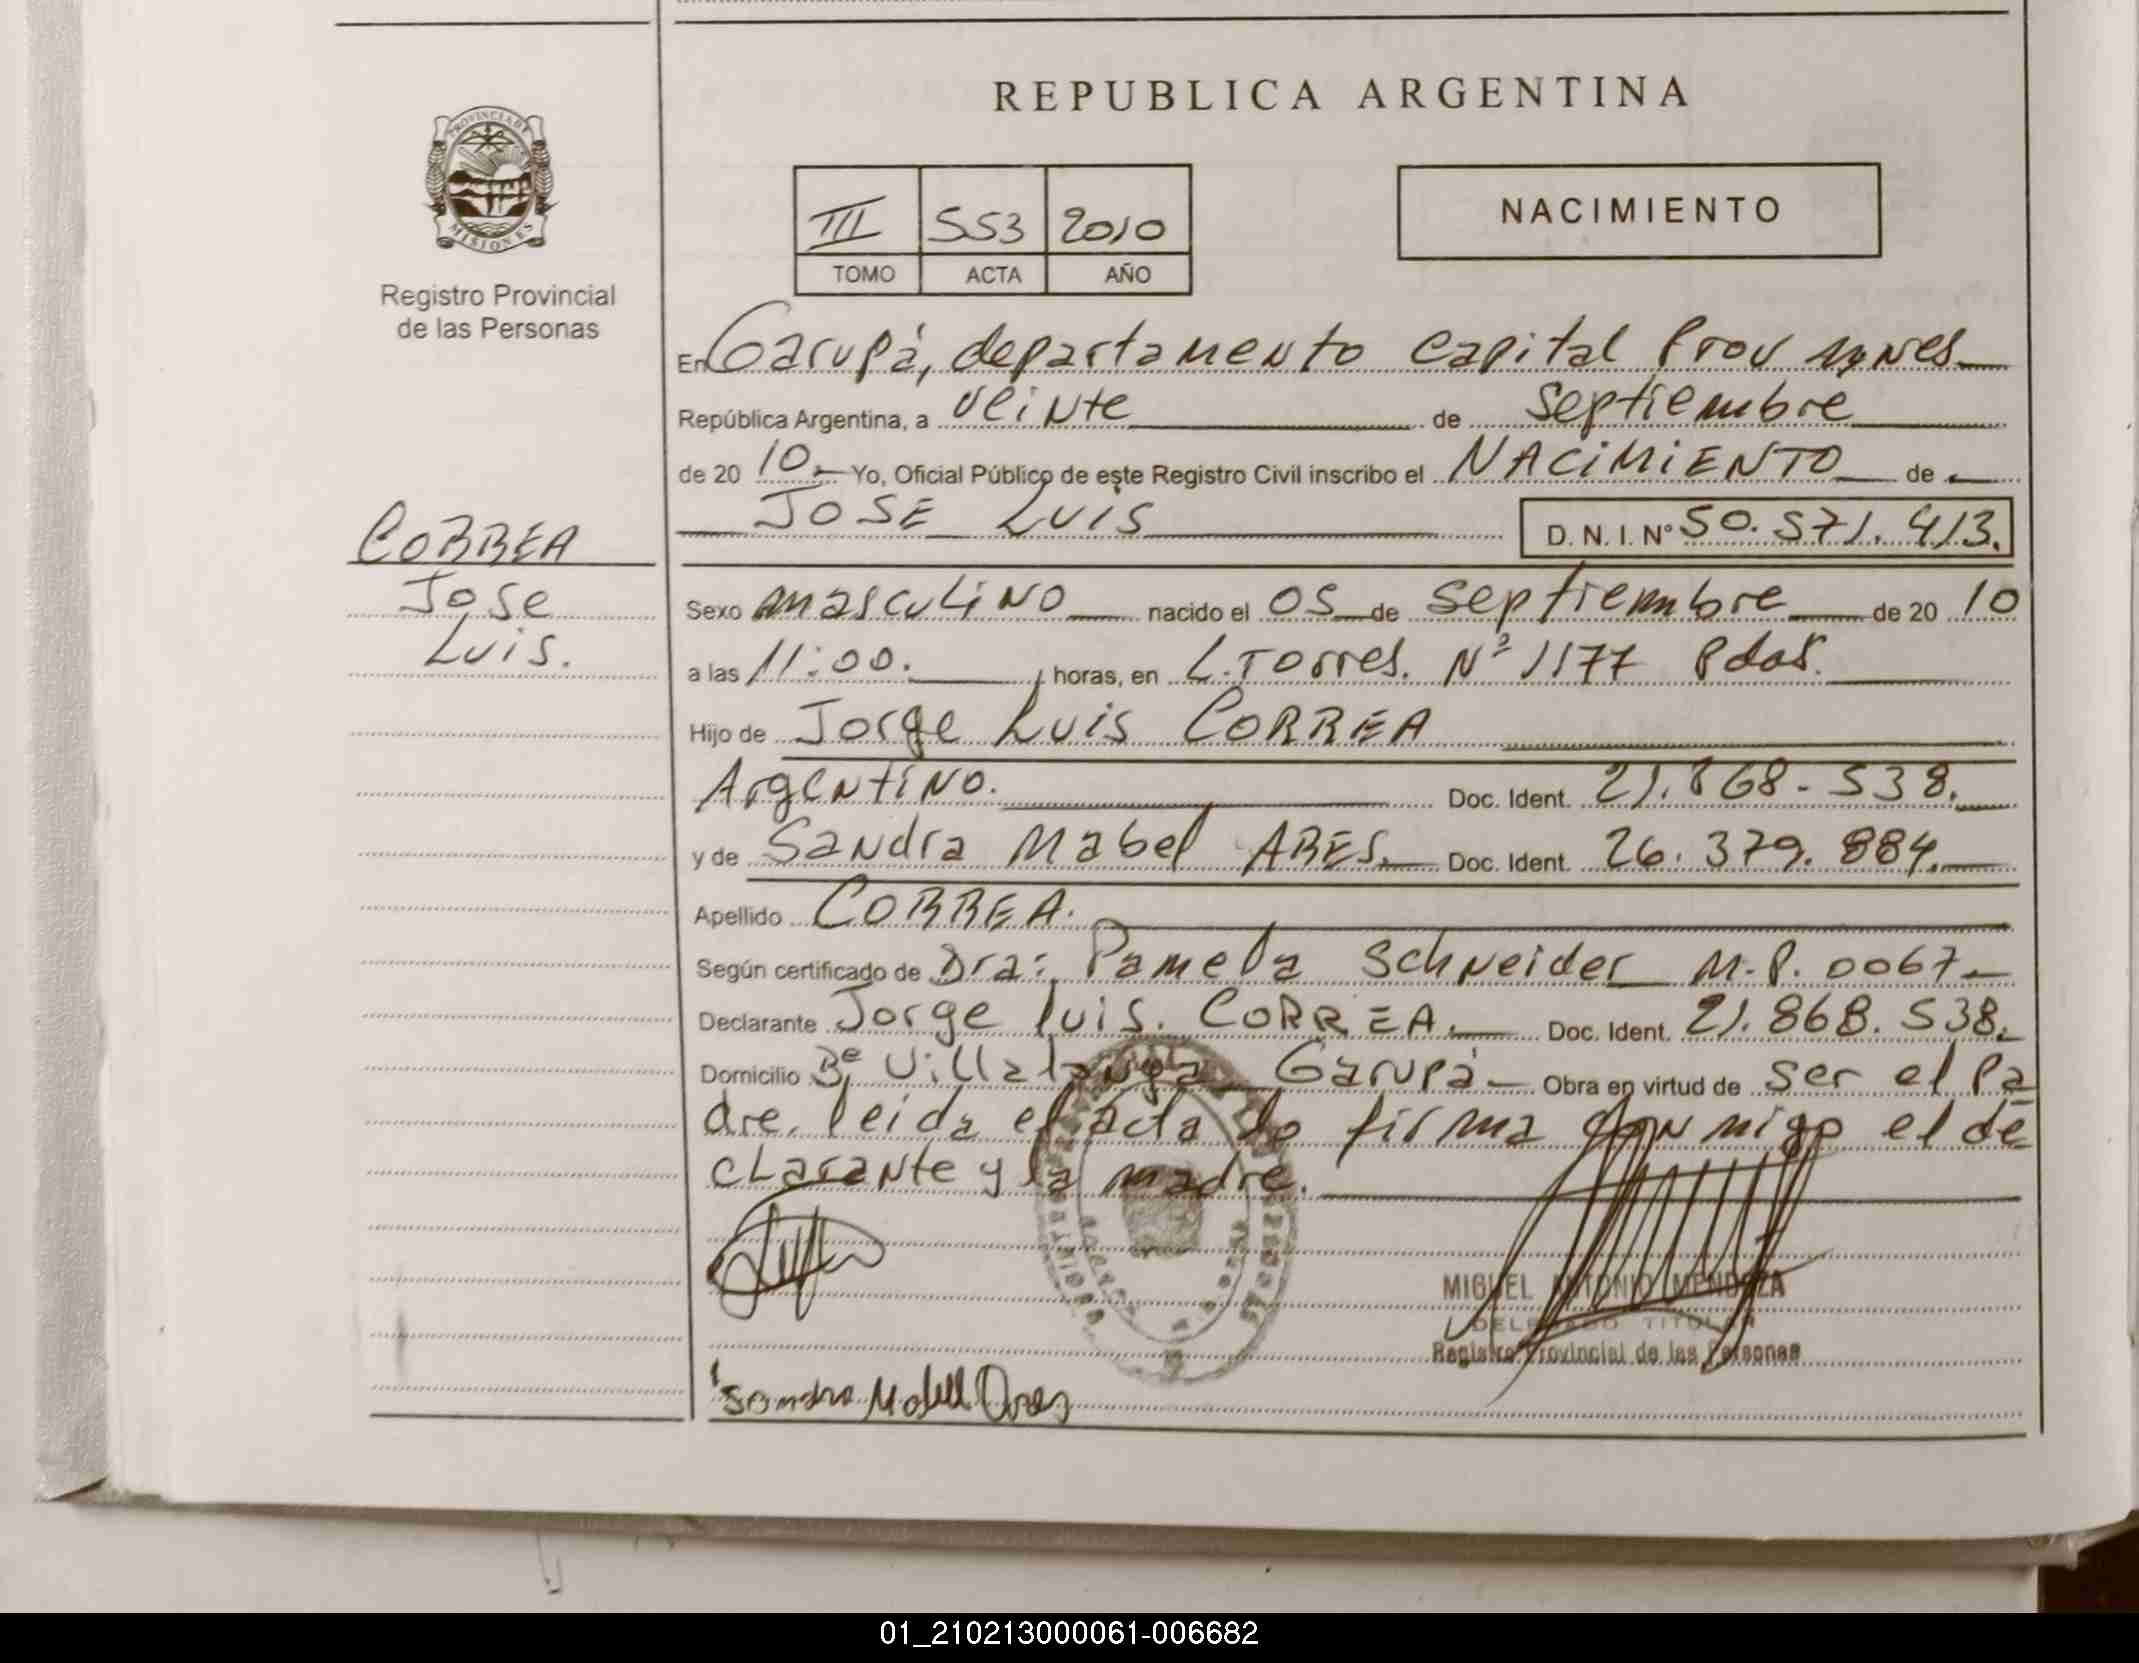 REPUBLICA ARGENTINA
PROVINCIA DE
MISIONES
Registro Provincial
de las Personas
III 553 2010
TOMO ACTA AÑO
NACIMIENTO
En Garupá, departamento Capital Prov
República Argentina, a veinte de septiembre
de 20 10.- Yo, Oficial Público de este Registro Civil inscribo el NACIMIENTO de
JOSE LUIS D. N. I. Nº 50.571.413.
CORREA
Jose
Luis.
Sexo masculino nacido el 05 de septiembre de 20 10
a las 11:00. horas, en L. Torres. Nº 1177 Pdas.
Hijo de Jorge Luis CORREA
Argentino. Doc. Ident. 21.868-538.
y de Sandra Mabel ARES. Doc. Ident. 26.379.884.
Apellido CORREA.
Según certificado de Dra: Pamela Schneider M.P. 0067-
Declarante Jorge luis. CORREA. Doc. Ident. 21.868.538.
Domicilio Bº Villalonga Garupá - Obra en virtud de ser el Pa
dre. leida el acta la firma conmigo el de
clarante y la madre.
MIGUEL ANTONIO MENDOZA
DELEGADO TITULAR
Registro Provincial de las Personas
Sandra Mabel Ares
01_210213000061-006682